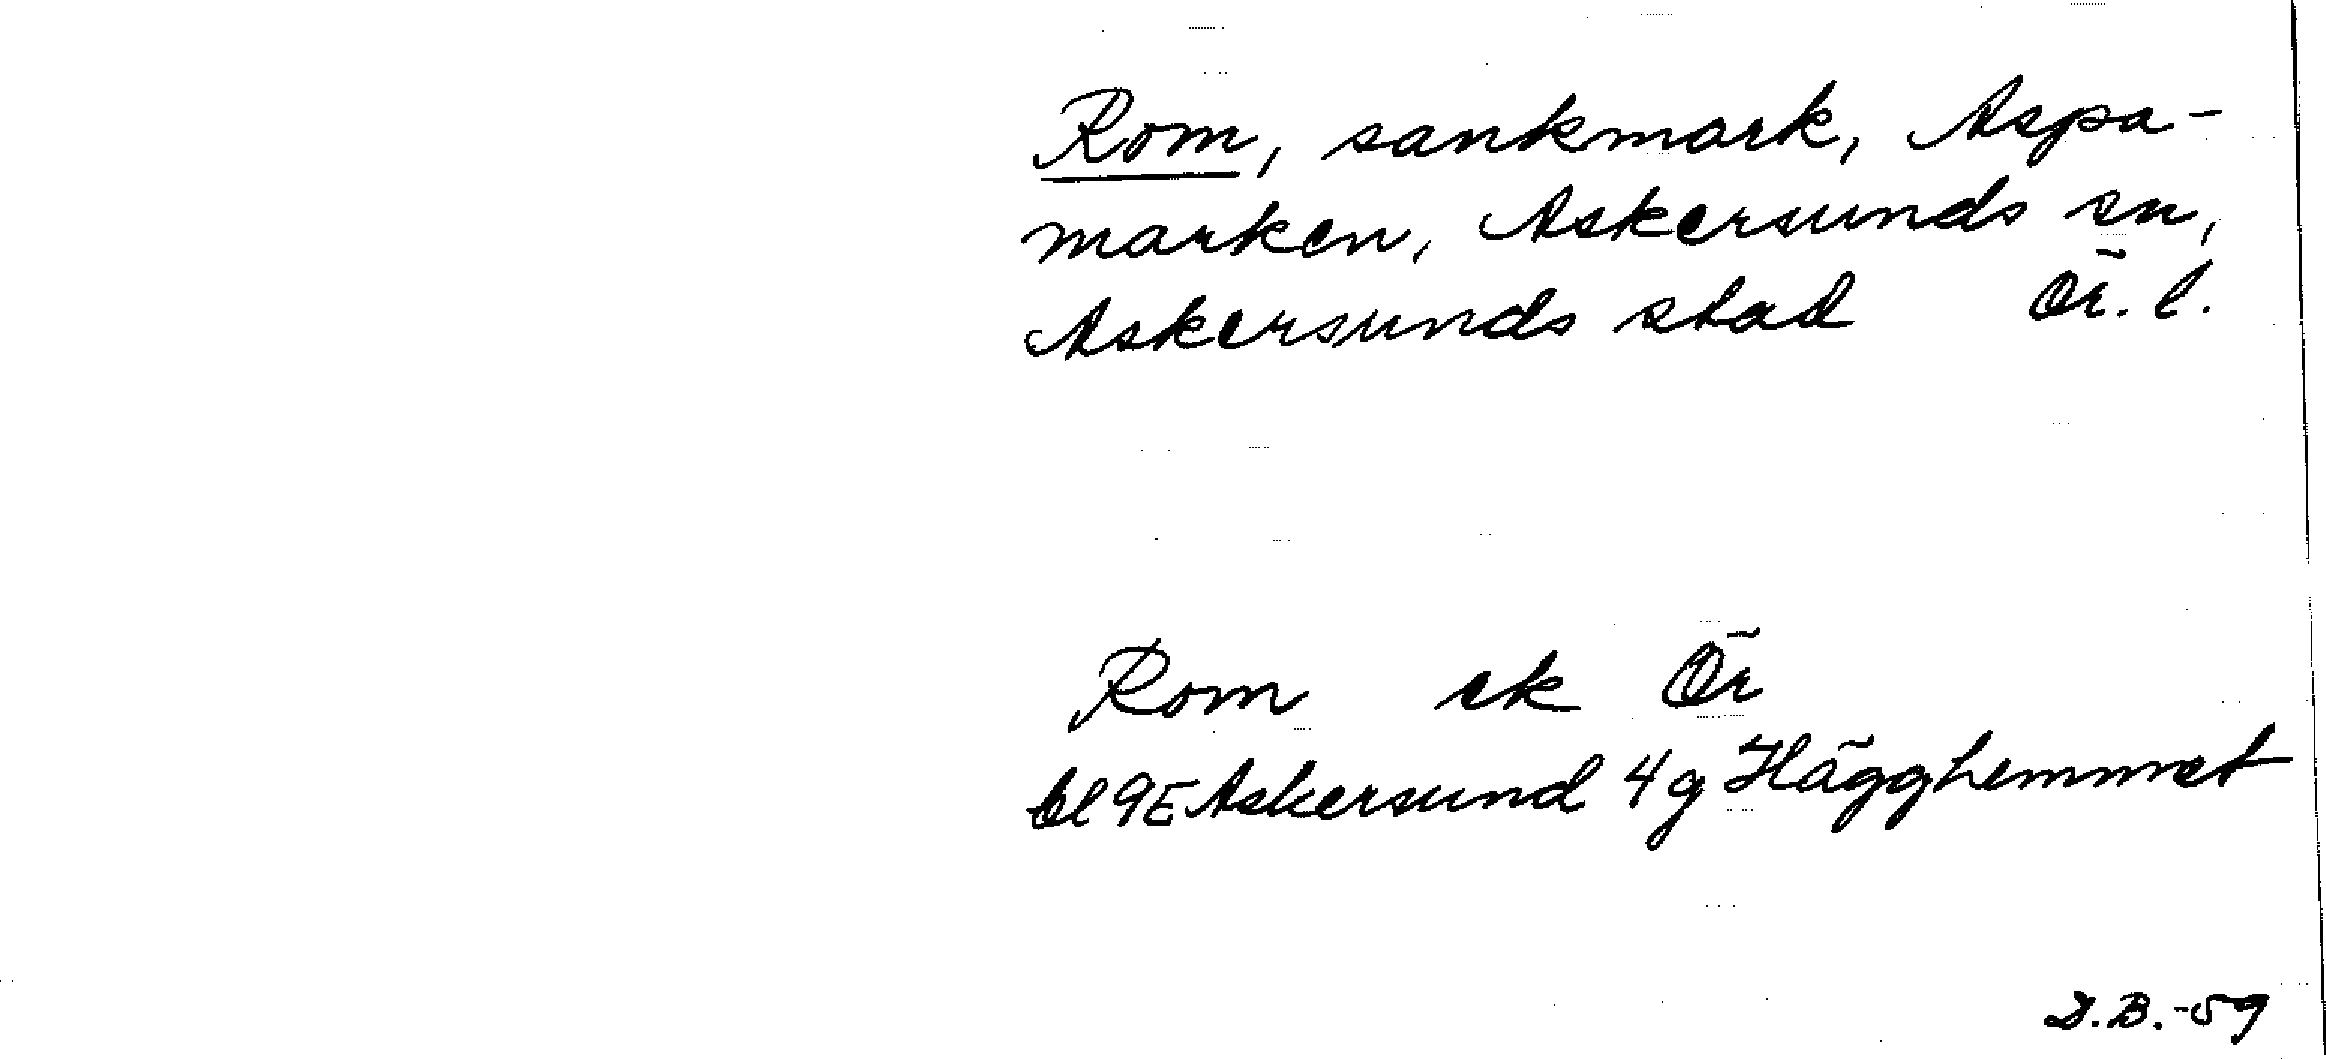 Rom, sankmark, Aspa-
marken, Askersunds sn,
Askersunds stad Ör. l.
Rom ek Ör
bl 9E Askersund 4g Hägghemmet
D.B.-59